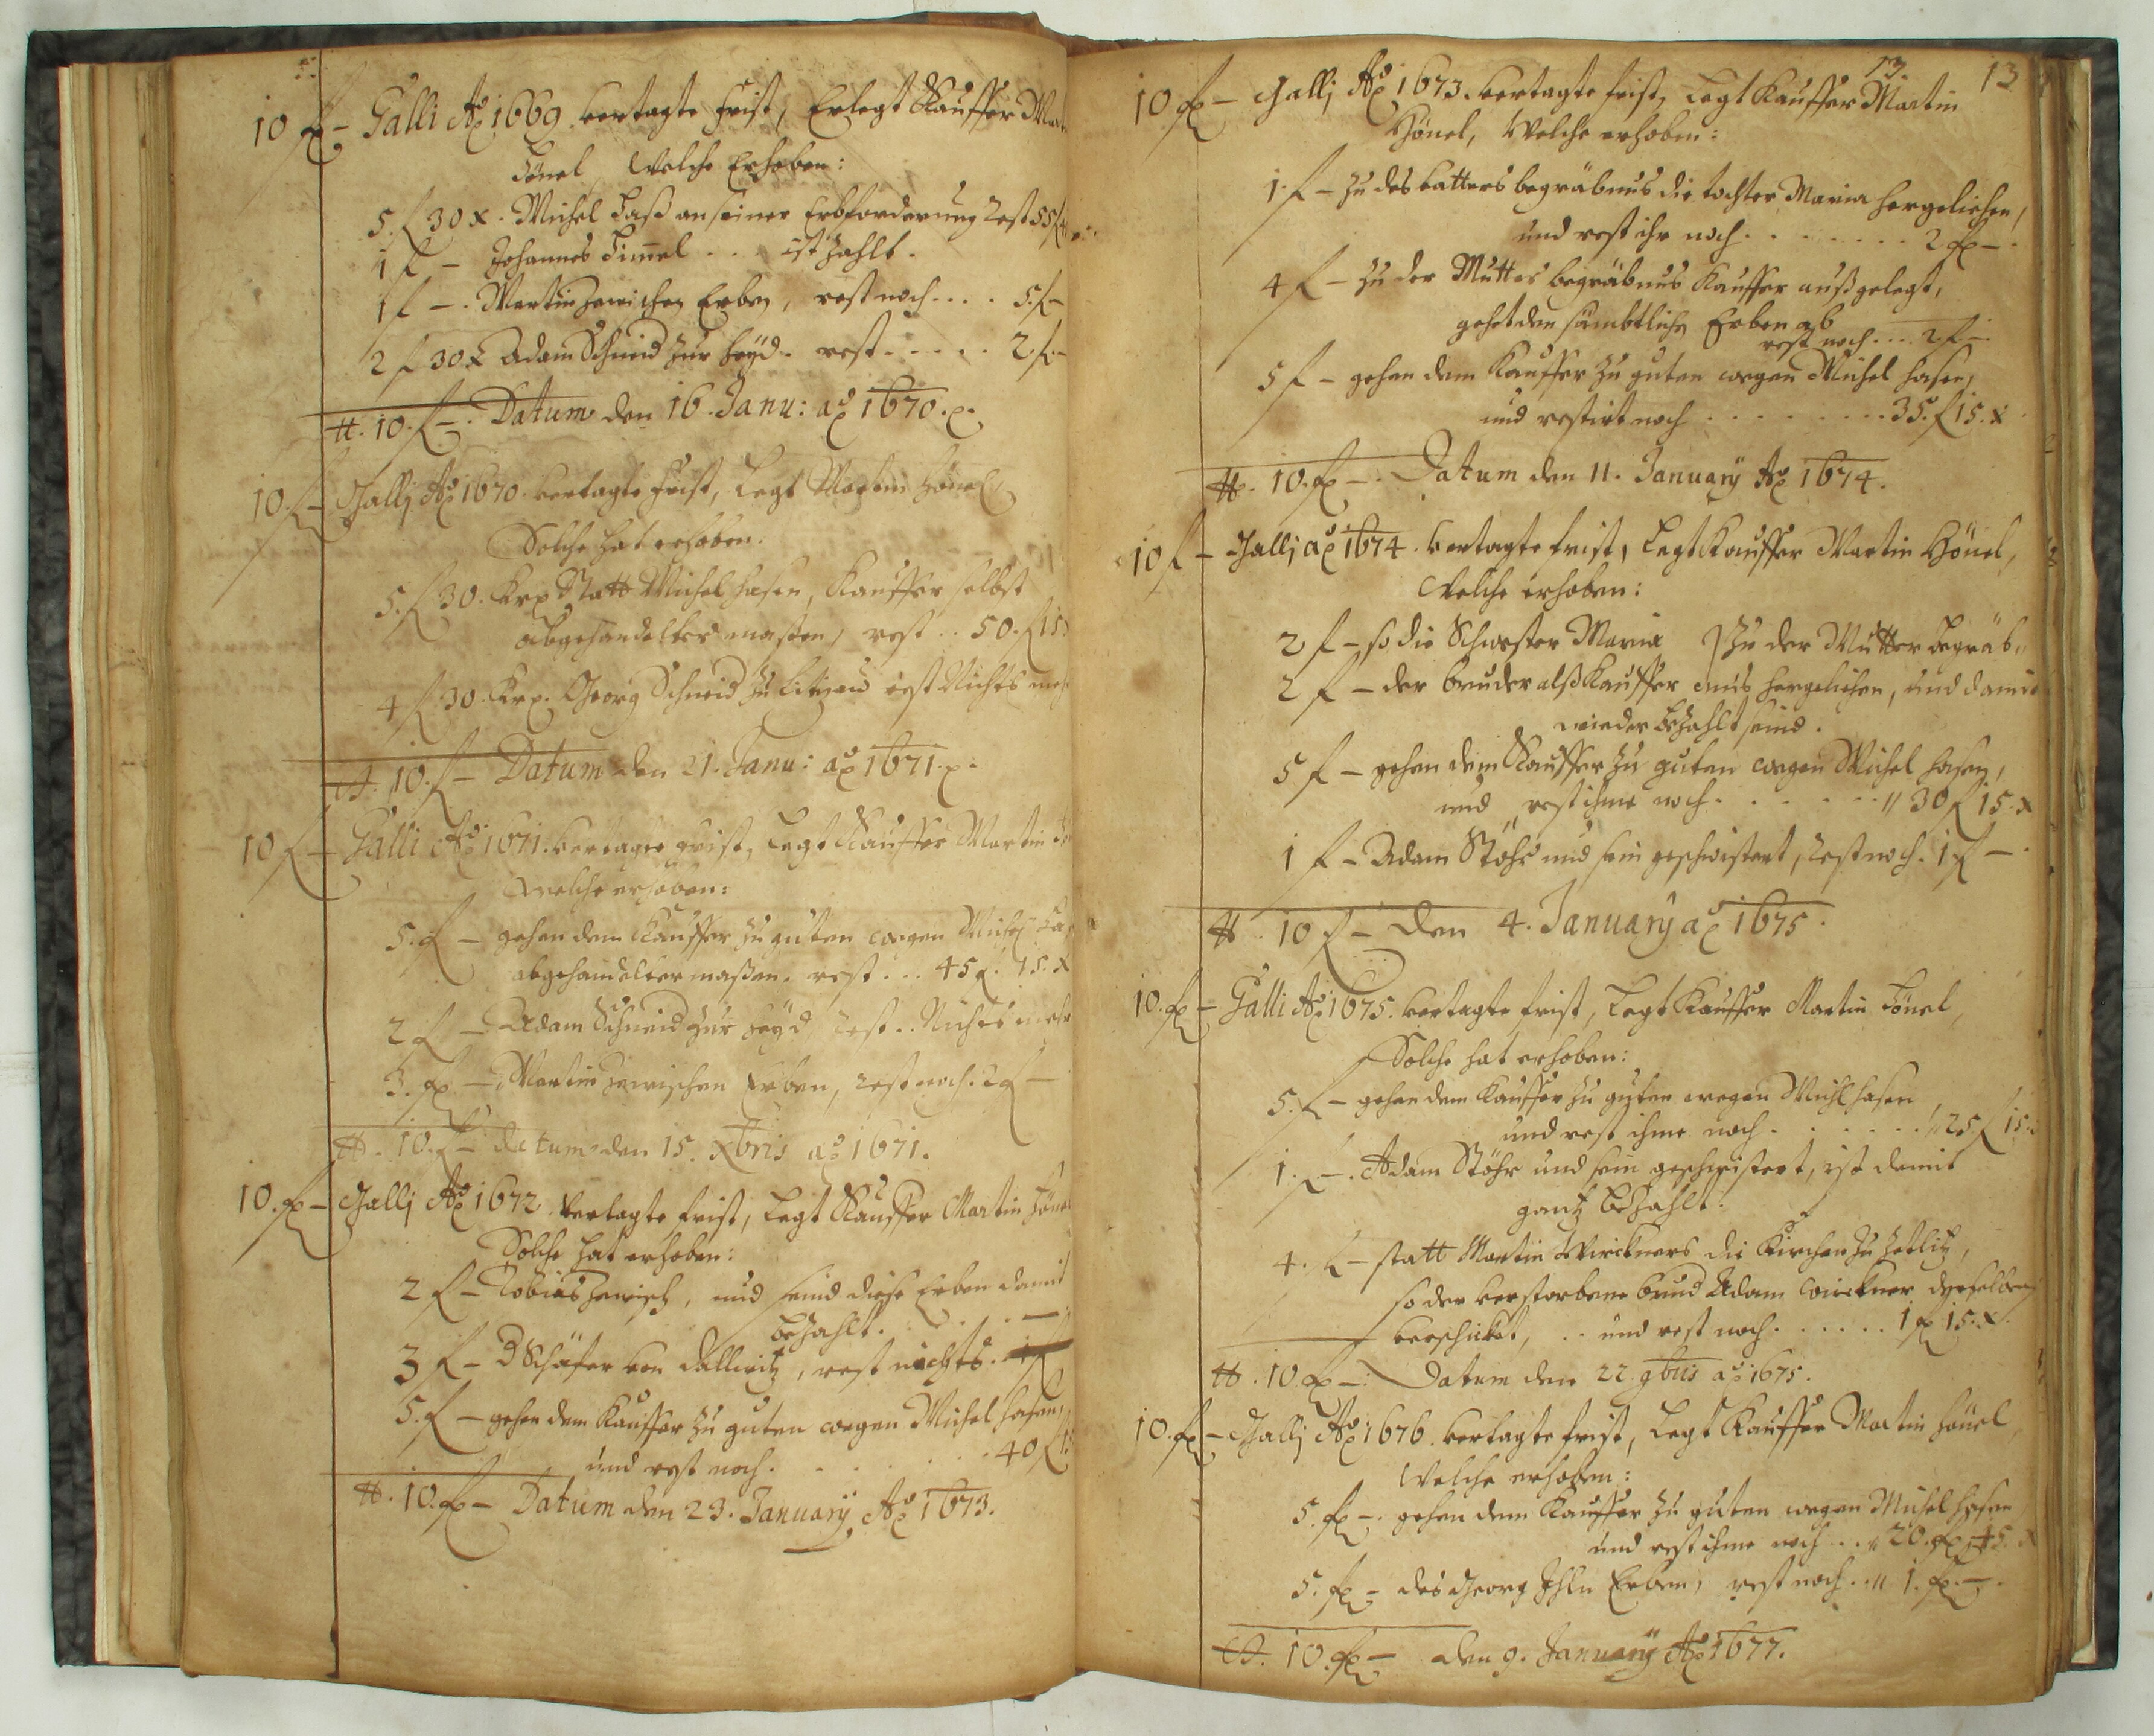 10 f – Galli Ao 1669 vertagte Frist, Erlegt Kauffer
Hönel, Welche Erhoben:
5 f 30 x. Michel Haß an seiner Erbforderung Rest 55 f
1 f – Johannes Himel . . . ist Zahlt.
1 f –. Martin Erben, rest noch . . . . 5. f –
2 f 30 x Adam Schmid zur . rest . . . . . 2. f. –
tt. 10. f –. Datum den 16. Janu: ao 1670. p.
10. f – Gallj Ao 1670. vertagte Frist, Legt Martin Hönel
Solche hat erhoben.
5. f 30. krp. Statt Michel Hasen, Kauffer selbst
abgehandelter maßen, rest . . 50. f 15
4 f 30. krp. Georg Schmid zu rest Nichts mehr
tt. 10. f – Datum den 21. Janu: ao 1671. p.
10 f – Galli Ao 1671. vertagte Frist, Legt Kauffer Martin
Welche erhoben:
5. f – gehen dem Kauffer zu guten wegen Michel
abgehandelter maßen. rest . . . 45 f. 15. x
2 f – Adam Schmid zur , rest . . Nichts mehr
3. f – Martin Erben, rest noch. 2 f –
tt. 10. f – datum den 15. Xbris ao 1671.
10. f – Gallj Ao 1672 vertagte frist, Legt Kauffer Martin Hönel
Solche hat erhoben:
2 f – Tobias , und seind diese Erben damit
bezahlt.
3 f – D Schäfer von Dallwitz, rest nichts.
5. f – gehen dem Kauffer zu guten wegen Michel Hasen,
und rest noch . . . . . . . 40 f 15
tt. 10. f – Datum den 23. January Ao 1673.
13. 13
10 f – Gallj Ao 1673. vertagte frist, Legt Kauffer Martin
Hönel, Welche erhoben:
1. f – zu des Vatters begräbnus die tochter Maria hergeliehen,
und rest ihr noch . . . . . . . . 2 f –.
4 f – zu der Mutter begräbnus Kauffer außgelegt,
gehet den sämbtlichen Erben ab
rest noch . . . . 2. f –.
5 f – gehen dem Kauffer zu guten wegen Michel Hasen,
und restirt noch . . . . . . . . . 35. f 15. x
tt. 10. f –. Datum den 11. January Ao 1674.
10 f – Gallj ao 1674. vertagte frist, Legt Kauffer Martin Hönel,
Welche erhoben:
2 f – so die Schwester Maria } Zu der Mutter begräb„
2 f – der bruder alß Kauffer hergeliehen, und damit
wieder bezahlt seind.
5 f – gehen dem Kauffer zu guten wegen Michel Hasen,
und rest ihme noch . . . . . . „ 30 f 15. x
1 f – Adam Stöhr und sein geschwistert, rest noch. 1 f –.
tt. 10 f – den 4. January ao 1675.
10. f – Galli Ao 1675. vertagte frist, Legt Kauffer Martin Hönel,
Solche hat erhoben:
5. f – gehen dem Kauffer zu guten wegen Michl Hasen
und rest ihme noch . . . . . . „ 25 f 15.
1. f –. Adam Stöhr und sein geschwistert, ist damit
gantz bezahlt.
4. f – statt Martin Wirckners die Kirchen zu Zettlitz,
so der verstorbene bruder Adam Wirckner derselben
verschicket, . . und rest noch . . . . . . 1 f 15. x.
tt. 10. f –: Datum den 22. 9bris ao 1675.
10. f – Gallj Ao 1676. vertagte frist, Legt Kauffer Martin Hönel
Welche erhoben:
5. f –. gehen dem Kauffer zu guten wegen Michel Hasen
und rest ihme noch . . „ 20. f 15. x
5. f – des Georg Erben, rest noch . „ 1. f. –.
tt. 10. f – den 9. January Ao 1677.